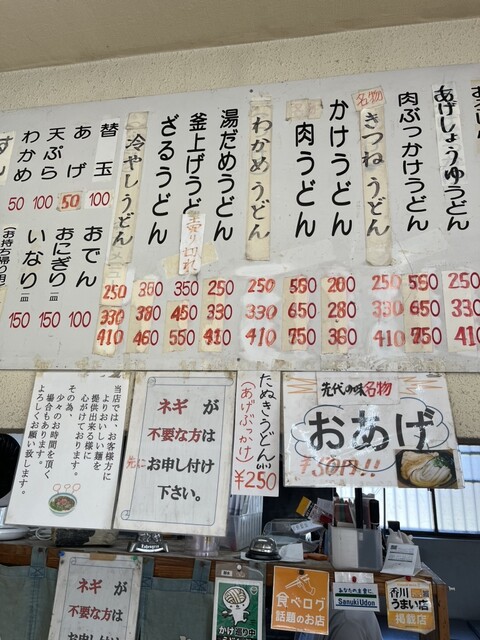 あげしょうゆうどん
250
330
410
肉ぶっかけうどん
550
650
750
名物
きつねうどん
250
330
410
かけうどん
200
280
360
肉うどん
550
650
750
わかめうどん
250
330
410
湯だめうどん
250
330
410
釜上げうどん
売り切れ
350
450
550
ざるうどん
300
380
460
冷やしうどん
250
330
410
替玉 100
あげ 50
天ぷら 100
わかめ 50
おでん 100
おにぎり一皿 150
いなり一皿 150
(お持ち帰り用)
当店では、お客様方に
よりおいしい麺を
提供出来る様に
心がけております。
その為、
少々のお時間を頂く
場合もあります。
よろしくお願い致します。
ネギ が
不要な方は
先に お申し付け
下さい。
たぬきうどん(小)
(あげぶっかけ)
¥250
先代の味名物
おあげ
¥50円!!
ネギ が
不要な方は
お申し付け
かけ巡り中
食べログ
話題のお店
あなたのお食に
SanukiUdon
香川
うまい店
掲載店